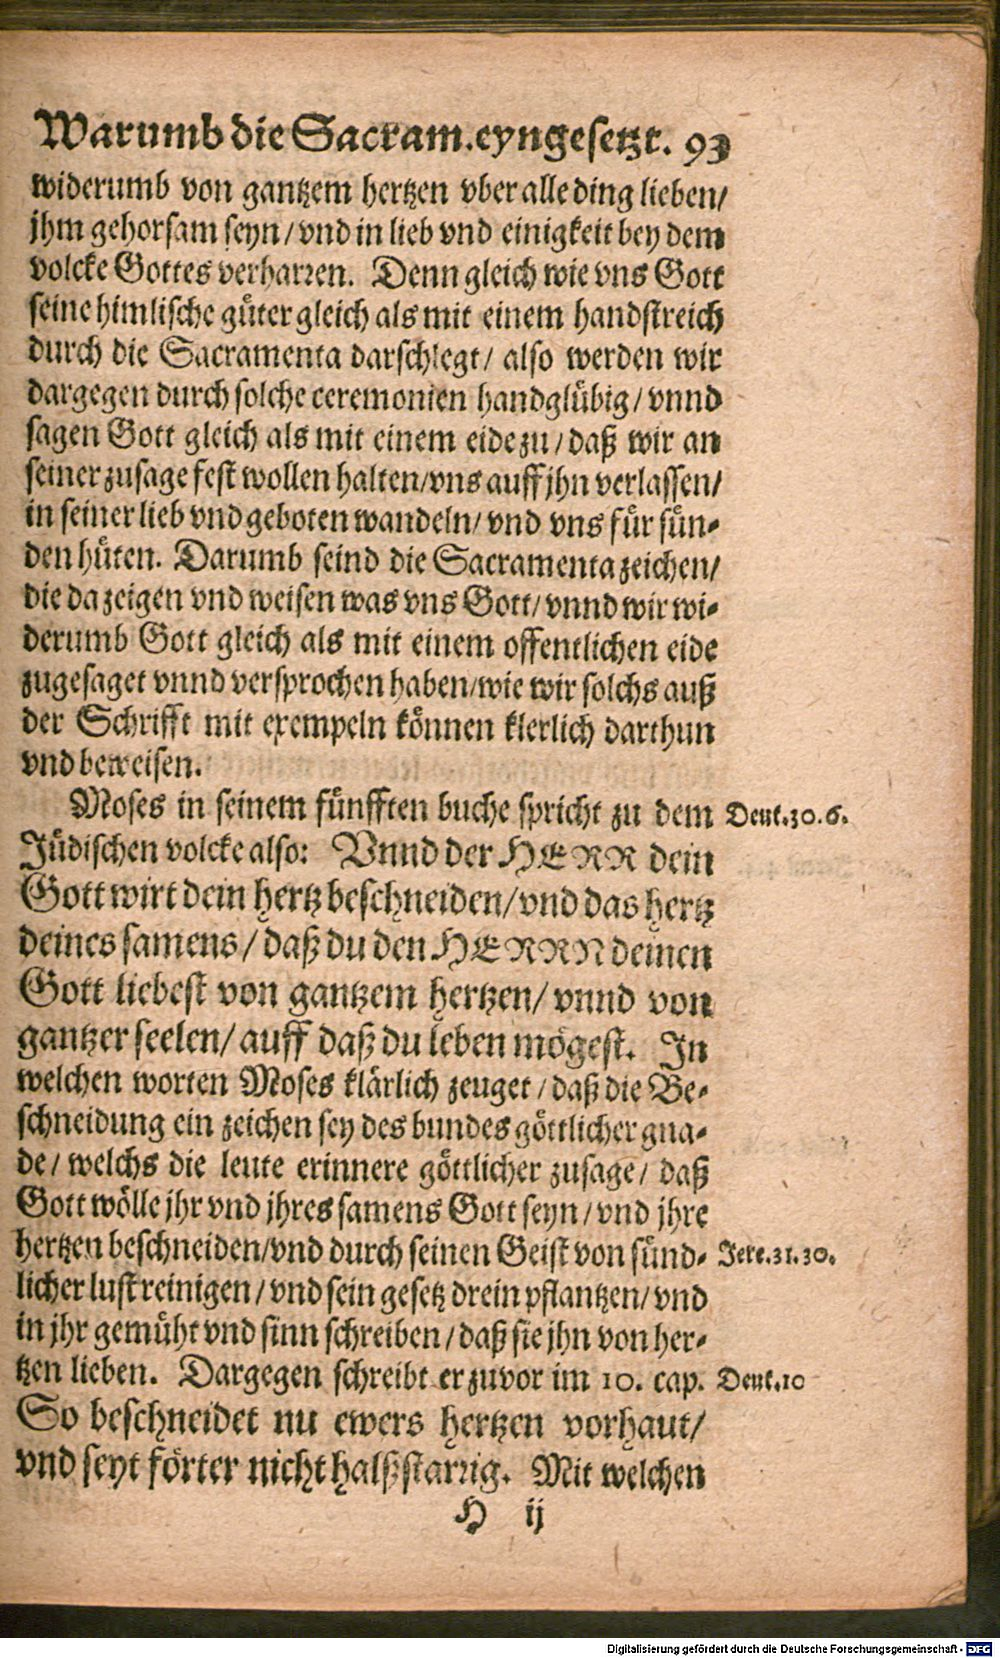 Warumb die Sacram. eyngesetzt. 93
widerumb von gantzem hertzen vber alle ding lieben/
jhm gehorsam seyn/vnd in lieb vnd einigkeit bey dem
volcke Gottes verharren. Denn gleich wie vns Gott
seine himlische güter gleich als mit einem handstreich
durch die Sacramenta darschlegt/ also werden wir
dargegen durch solche ceremonien handglübig/ vnnd
sagen Gott gleich als mit einem eide zu/ daß wir an
seiner zusage fest wollen halten/vns auff jhn verlassen/
in seiner lieb vnd geboten wandeln/ vnd vns für sün-
den hüten. Darumb seind die Sacramenta zeichen/
die da zeigen vnd weisen was vns Gott/ vnnd wir wi-
derumb Gott gleich als mit einem offentlichen eide
zugesaget vnnd versprochen haben/wie wir solchs auß
der Schrifft mit exempeln können klerlich darthun
vnd beweisen.
Moses in seinem fünfften buche spricht zu dem Deut.30.6.
Jüdischen volcke also: Vnnd der HERR dein
Gott wirt dein hertz beschneiden/vnd das hertz
deines samens/ daß du den HERRN deinen
Gott liebest von gantzem hertzen/ vnnd von
gantzer seelen/ auff daß du leben mögest. In
welchen worten Moses klärlich zeuget/ daß die Be-
schneidung ein zeichen sey des bundes göttlicher gna-
de/ welchs die leute erinnere göttlicher zusage/ daß
Gott wölle jhr vnd jhres samens Gott seyn/ vnd jhre
hertzen beschneiden/vnd durch seinen Geist von sünd- Jere.31.30.
licher lust reinigen/ vnd sein gesetz drein pflantzen/ vnd
in jhr gemüht vnd sinn schreiben/ daß sie jhn von her-
tzen lieben. Dargegen schreibt er zuvor im 10. cap. Deut.10
So beschneidet nu ewers hertzen vorhaut/
vnd seyt förter nicht halßstarrig. Mit welchen
H ij
Digitalisierung gefördert durch die Deutsche Forschungsgemeinschaft - DFG